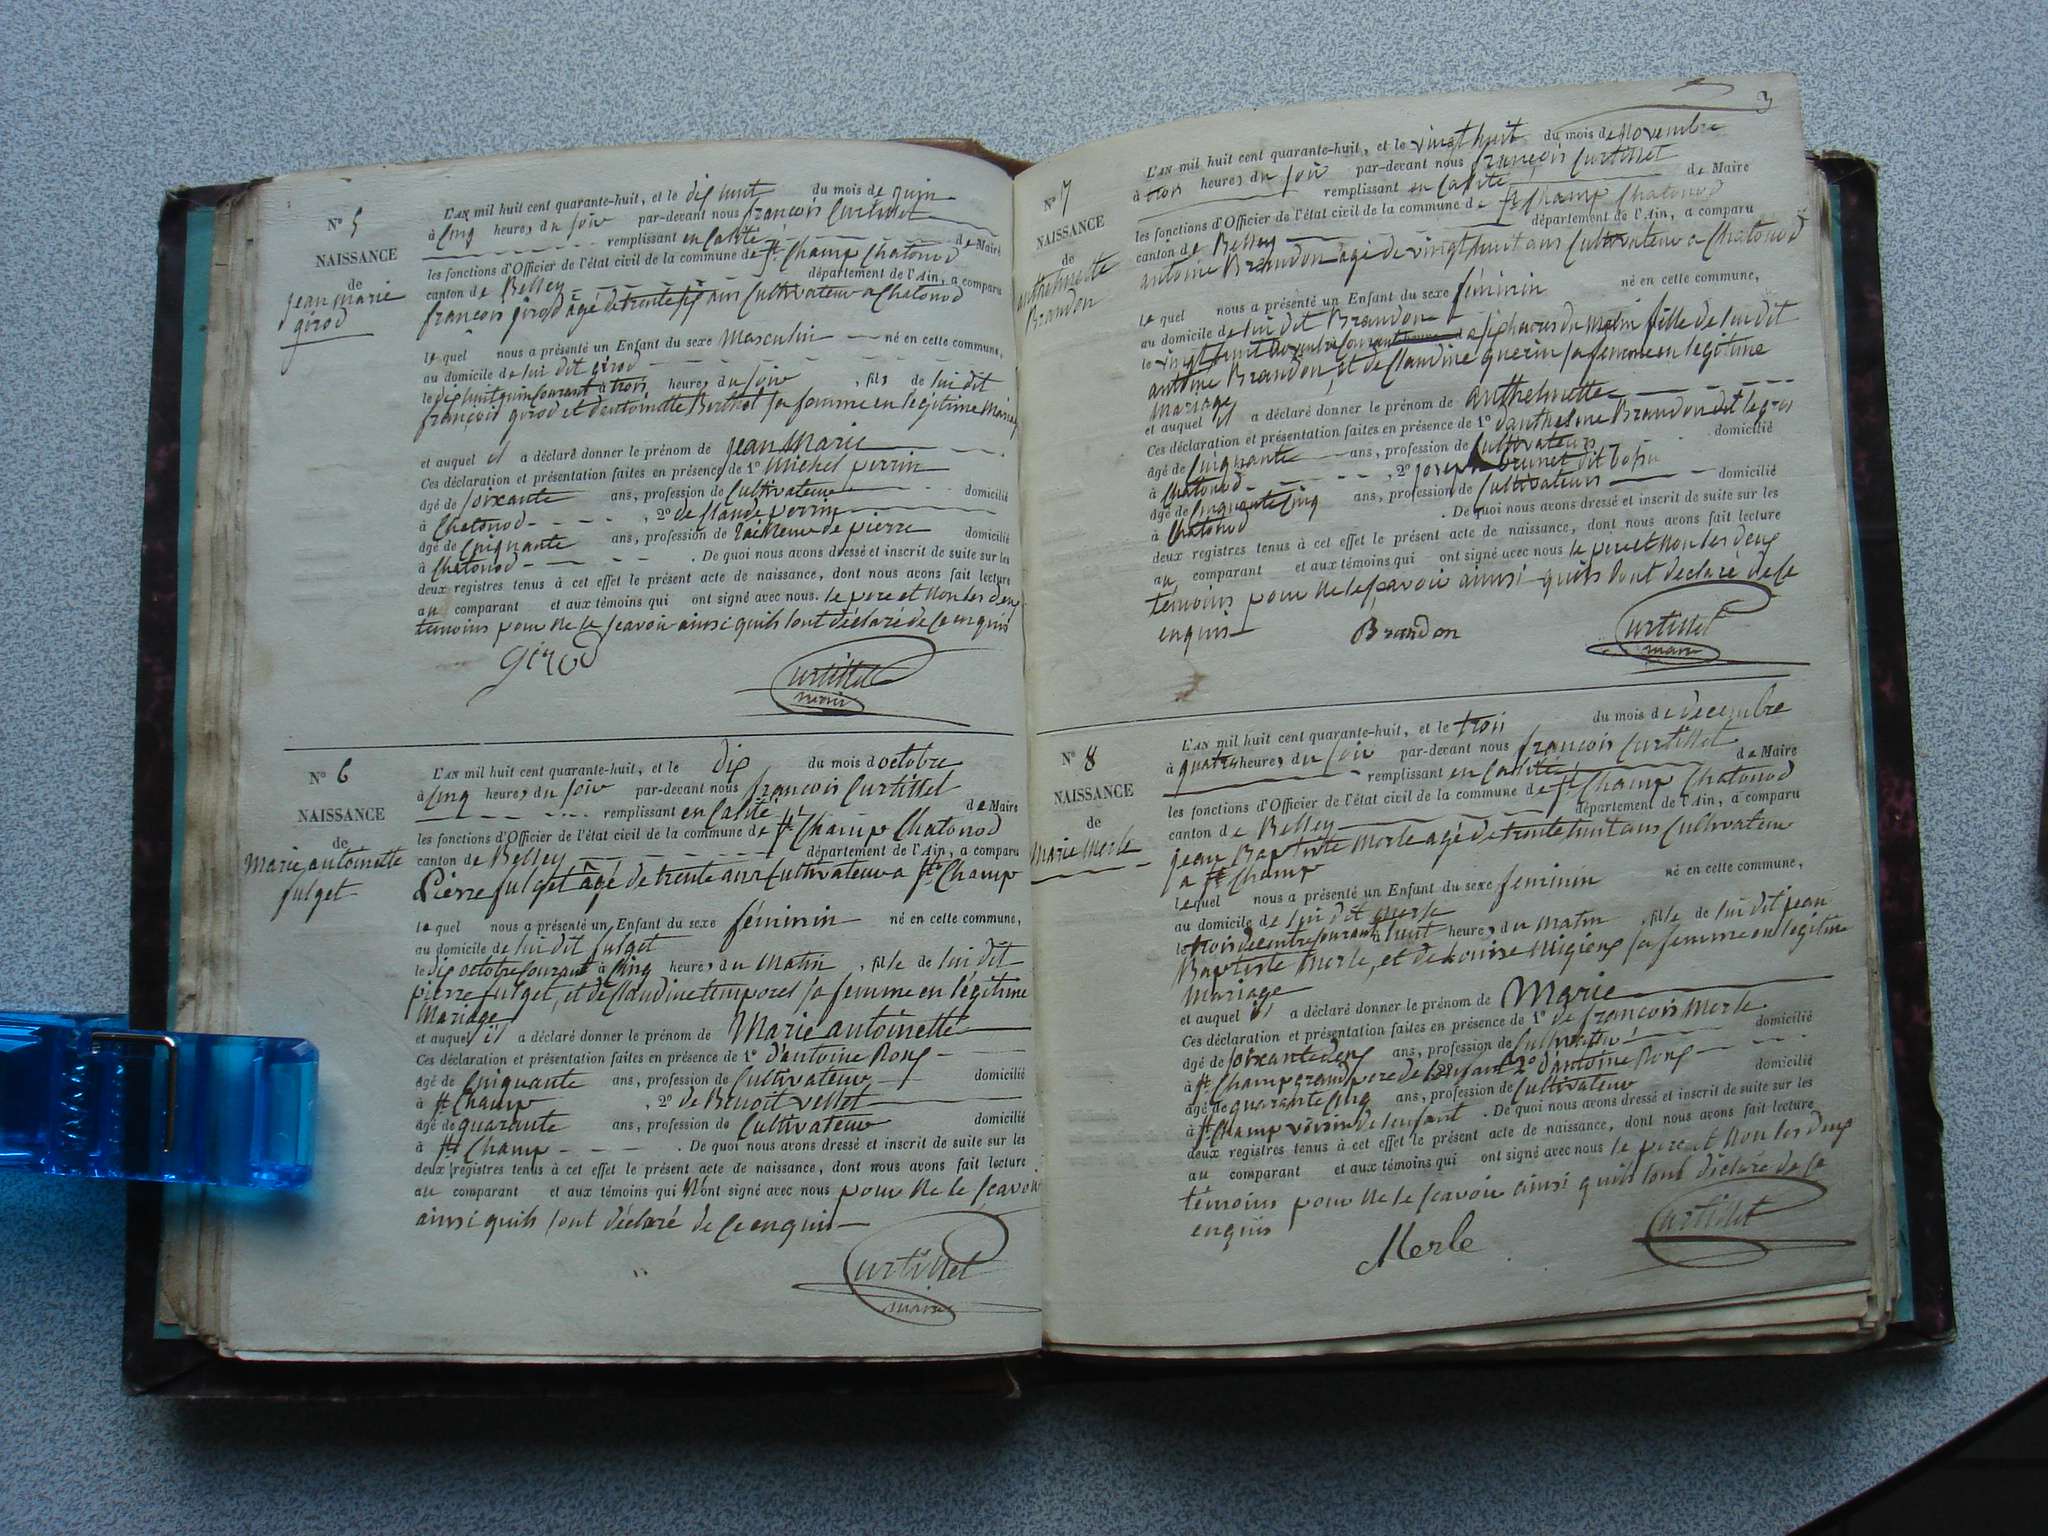 Nº 5
NAISSANCE
de
jean marie
girod
L'AN mil huit cent quarante-huit, et le dix huit du mois de juin
à Cinq heures du soir par-devant nous françois Curtillet
remplissant en Calité de Maire
les fonctions d'Officier de l'état civil de la commune de St Champ Chatonod
canton de Belley département de l'Ain, a comparu
françois girod agé de trente six ans Cultivateur a Chatonod
lequel nous a présenté un Enfant du sexe Masculin né en cette commune,
au domicile de lui dit girod
le dix huit juin Courant à trois heures du soir, fils de lui dit
françois girod et d'antoinette Berthet sa femme en légitime Mariage
et auquel il a déclaré donner le prénom de jean Marie
Ces déclaration et présentation faites en présence de 1º Michel perrin
âgé de soixante ans, profession de Cultivateur domicilié
à Chatonod, 2º de Claude perrin
âgé de Cinquante ans, profession de tailleur de pierre domicilié
à Chatonod. De quoi nous avons dressé et inscrit de suite sur les
deux registres tenus à cet effet le présent acte de naissance, dont nous avons fait lecture
au comparant et aux témoins qui ont signé avec nous. le pere et Non les deux
temoins pour Ne le scavoir ainsi quils sont déclaré de Ce enquis
girod
Curtillet
maire
Nº 6
NAISSANCE
de
Marie antoinette
fulget
L'AN mil huit cent quarante-huit, et le dix du mois d octobre
à Cinq heures du soir par-devant nous françois Curtillet
remplissant en Calité de Maire
les fonctions d'Officier de l'état civil de la commune de St Champ Chatonod
canton de Belley département de l'Ain, a comparu
Pierre fulget âgé de trente ans Cultivateur a St Champ
lequel nous a présenté un Enfant du sexe féminin né en cette commune,
au domicile de lui dit fulget
le dix octobre Courant à Cinq heures du Matin, fille de lui dit
pierre fulget, et de Claudine temporel sa femme en légitime
Mariage
et auquel il a déclaré donner le prénom de Marie antoinette
Ces déclaration et présentation faites en présence de 1º d'antoine Rong
âgé de Cinquante ans, profession de Cultivateur domicilié
à St Champ, 2º de Benoit vellet
âgé de quarante ans, profession de Cultivateur domicilié
à St Champ. De quoi nous avons dressé et inscrit de suite sur les
deux registres tenus à cet effet le présent acte de naissance, dont nous avons fait lecture
au comparant et aux témoins qui N'ont signé avec nous pour Ne le scavoir
ainsi quils sont déclaré de Ce enquis
Curtillet
maire
3
Nº 7
NAISSANCE
de
anthelmette
Brandon
L'AN mil huit cent quarante-huit, et le vingt huit du mois de Novembre
à trois heures du soir par-devant nous françois Curtillet
remplissant en Calité de Maire
les fonctions d'Officier de l'état civil de la commune de St Champ Chatonod
canton de Belley département de l'Ain, a comparu
antoine Brandon agé de vingt huit ans Cultivateur a Chatonod
lequel nous a présenté un Enfant du sexe féminin né en cette commune,
au domicile de lui dit Brandon
le vingt huit Novembre Courant a six heures du Matin fille de lui dit
antoine Brandon, et de Claudine guerin sa femme en légitime
Mariage
et auquel il a déclaré donner le prénom de anthelmette
Ces déclaration et présentation faites en présence de 1º d'anthelme Brandon dit le gros
âgé de Cinquante ans, profession de Cultivateurs domicilié
à Chatonod, 2º joseph brunet dit
âgé de Cinquante Cinq ans, profession de Cultivateurs domicilié
à Chatonod. De quoi nous avons dressé et inscrit de suite sur les
deux registres tenus à cet effet le présent acte de naissance, dont nous avons fait lecture
au comparant et aux témoins qui ont signé avec nous le pere et Non les deux
témoins pour Ne le scavoir ainsi quils sont déclaré de Ce
enquis
Brandon
Curtillet
maire
Nº 8
NAISSANCE
de
Marie Merle
L'AN mil huit cent quarante-huit, et le trois du mois de decembre
à quatre heures du soir par-devant nous françois Curtillet
remplissant en Calité de Maire
les fonctions d'Officier de l'état civil de la commune de St Champ Chatonod
canton de Belley département de l'Ain, a comparu
jean Baptiste Merle agé de trente huit ans Cultivateur
a St Champ
lequel nous a présenté un Enfant du sexe féminin né en cette commune,
au domicile de lui dit Merle
le trois decembre Courant à huit heures du Matin, fille de lui dit jean
Baptiste Merle, et de Louise Migieng sa femme en légitime
Mariage
et auquel il a déclaré donner le prénom de Marie
Ces déclaration et présentation faites en présence de 1º de françois Merle
âgé de soixante deux ans, profession de Cultivateur domicilié
à St Champ grand pere de l'enfant 2º d'antoine Rong
âgé de quarante Cinq ans, profession de Cultivateur domicilié
à St Champ voisin de l'enfant. De quoi nous avons dressé et inscrit de suite sur les
deux registres tenus à cet effet le présent acte de naissance, dont nous avons fait lecture
au comparant et aux témoins qui ont signé avec nous le pere et Non les deux
témoins pour Ne le scavoir ainsi quils sont déclaré de Ce
enquis
Merle
Curtillet